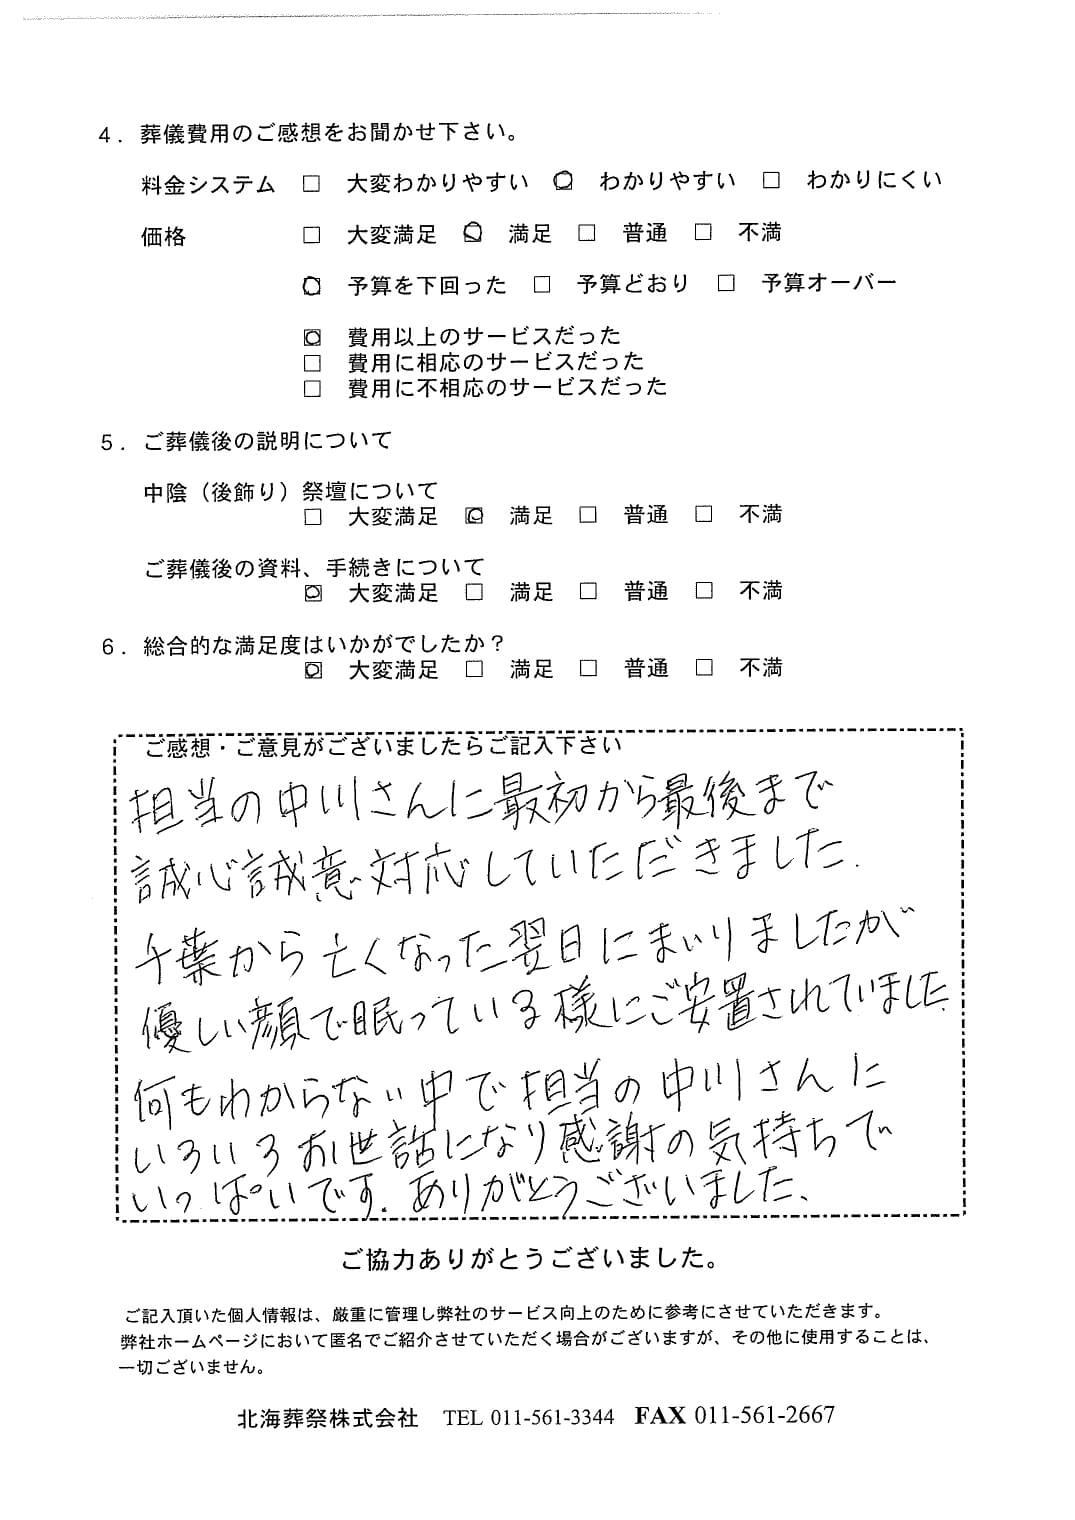 4．葬儀費用のご感想をお聞かせ下さい。
料金システム □ 大変わかりやすい ☑ わかりやすい □ わかりにくい
価格 □ 大変満足 ☑ 満足 □ 普通 □ 不満
☑ 予算を下回った □ 予算どおり □ 予算オーバー
☑ 費用以上のサービスだった
□ 費用に相応のサービスだった
□ 費用に不相応のサービスだった
5．ご葬儀後の説明について
中陰（後飾り）祭壇について
□ 大変満足 ☑ 満足 □ 普通 □ 不満
ご葬儀後の資料、手続きについて
☑ 大変満足 □ 満足 □ 普通 □ 不満
6．総合的な満足度はいかがでしたか？
☑ 大変満足 □ 満足 □ 普通 □ 不満
ご感想・ご意見がございましたらご記入下さい
担当の中川さんに最初から最後まで
誠心誠意対応していただきました.
千葉から亡くなった翌日にまいりましたが
優しい顔で眠っている様にご安置されていました.
何もわからない中で担当の中川さんに
いろいろお世話になり感謝の気持ちで
いっぱいです. ありがとうございました、
ご協力ありがとうございました。
ご記入頂いた個人情報は、厳重に管理し弊社のサービス向上のために参考にさせていただきます。
弊社ホームページにおいて匿名でご紹介させていただく場合がございますが、その他に使用することは、
一切ございません。
北海葬祭株式会社 TEL 011-561-3344 FAX 011-561-2667